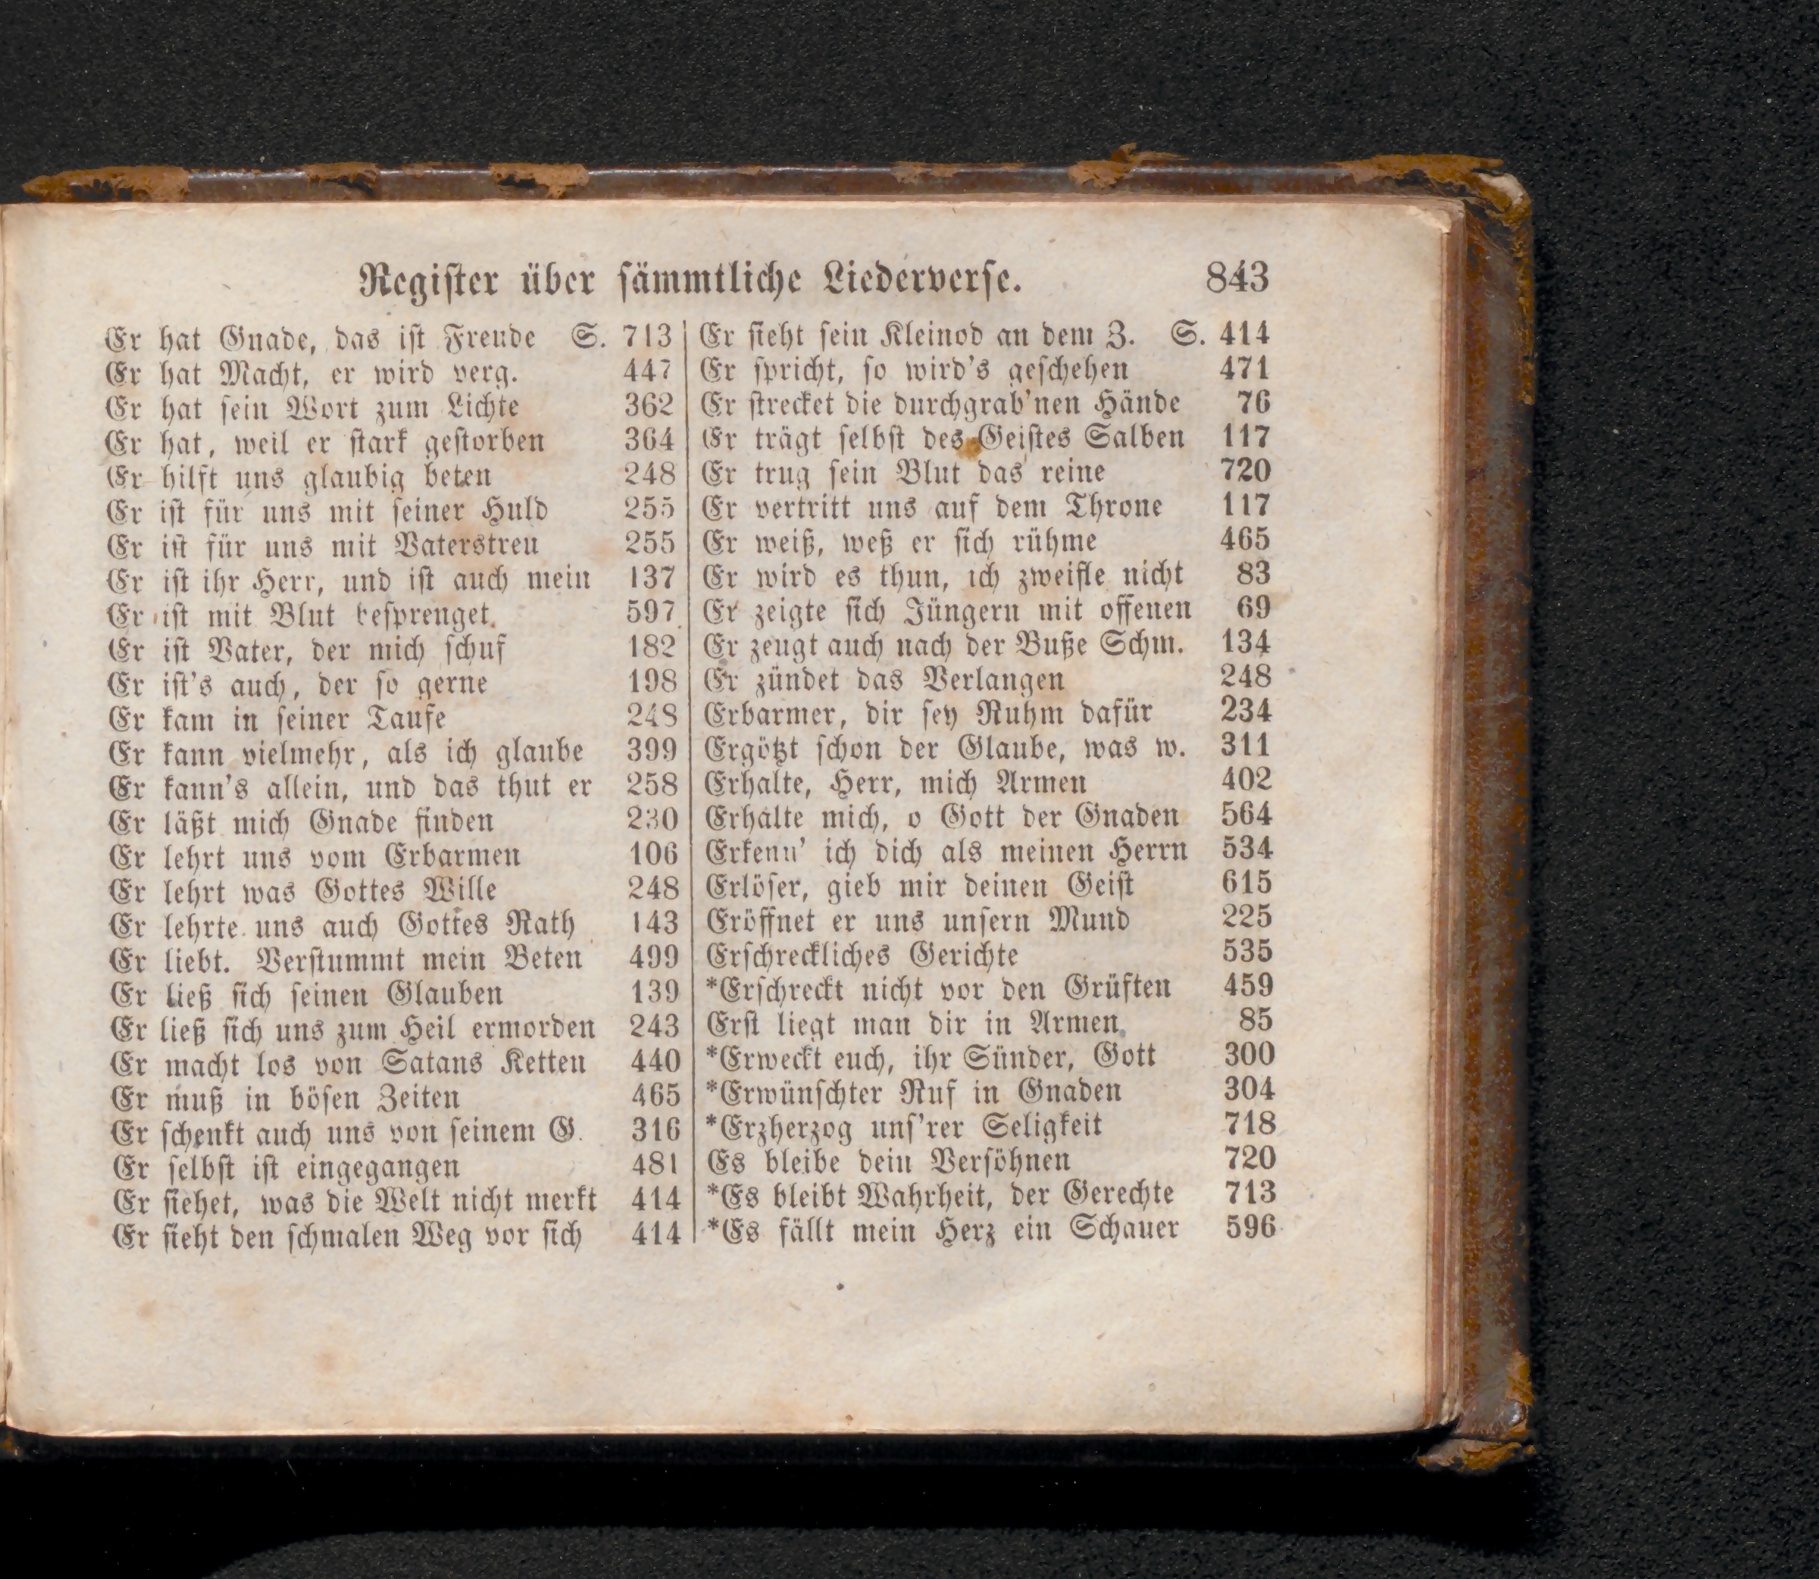 Register über sämmtliche Liederverse. 843
Er hat Gnade, das ist Freude S. 713
Er hat Macht, er wird verg. 447
Er hat sein Wort zum Lichte 362
Er hat, weil er stark gestorben 364
Er hilft uns glaubig beten 248
Er ist für uns mit seiner Huld 255
Er ist für uns mit Vaterstreu 255
Er ist ihr Herr, und ist auch mein 137
Er ist mit Blut besprenget. 597
Er ist Vater, der mich schuf 182
Er ist's auch, der so gerne 198
Er kam in seiner Taufe 248
Er kann vielmehr, als ich glaube 399
Er kann's allein, und das thut er 258
Er läßt mich Gnade finden 230
Er lehrt uns vom Erbarmen 106
Er lehrt was Gottes Wille 248
Er lehrte uns auch Gottes Rath 143
Er liebt. Verstummt mein Beten 499
Er ließ sich seinen Glauben 139
Er ließ sich uns zum Heil ermorden 243
Er macht los von Satans Ketten 440
Er muß in bösen Zeiten 465
Er schenkt auch uns von seinem G. 316
Er selbst ist eingegangen 481
Er siehet, was die Welt nicht merkt 414
Er sieht den schmalen Weg vor sich 414
Er sieht sein Kleinod an dem Z. S. 414
Er spricht, so wird's geschehen 471
Er strecket die durchgrab'nen Hände 76
Er trägt selbst des Geistes Salben 117
Er trug sein Blut das reine 720
Er vertritt uns auf dem Throne 117
Er weiß, weß er sich rühme 465
Er wird es thun, ich zweifle nicht 83
Er zeigte sich Jüngern mit offenen 69
Er zeugt auch nach der Buße Schm. 134
Er zündet das Verlangen 248
Erbarmer, dir sey Ruhm dafür 234
Ergötzt schon der Glaube, was w. 311
Erhalte, Herr, mich Armen 402
Erhalte mich, o Gott der Gnaden 564
Erkenn' ich dich als meinen Herrn 534
Erlöser, gieb mir deinen Geist 615
Eröffnet er uns unsern Mund 225
Erschreckliches Gerichte 535
*Erschreckt nicht vor den Grüften 459
Erst liegt man dir in Armen. 85
*Erweckt euch, ihr Sünder, Gott 300
*Erwünschter Ruf in Gnaden 304
*Erzherzog uns'rer Seligkeit 718
Es bleibe dein Versöhnen 720
*Es bleibt Wahrheit, der Gerechte 713
*Es fällt mein Herz ein Schauer 596